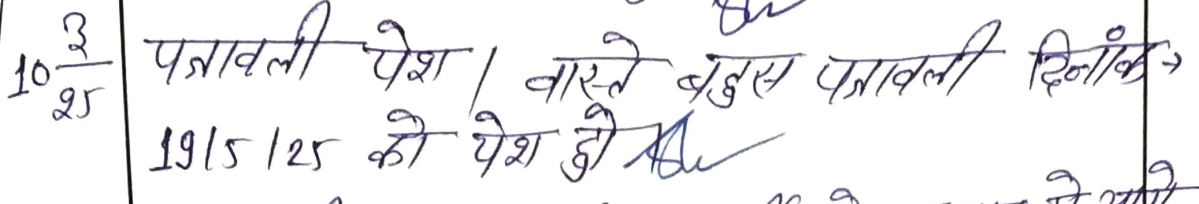 10 3/25 पत्रावली पेश। वास्ते बहुस पत्रावली दिनांक
19/5/25 को पेश हो